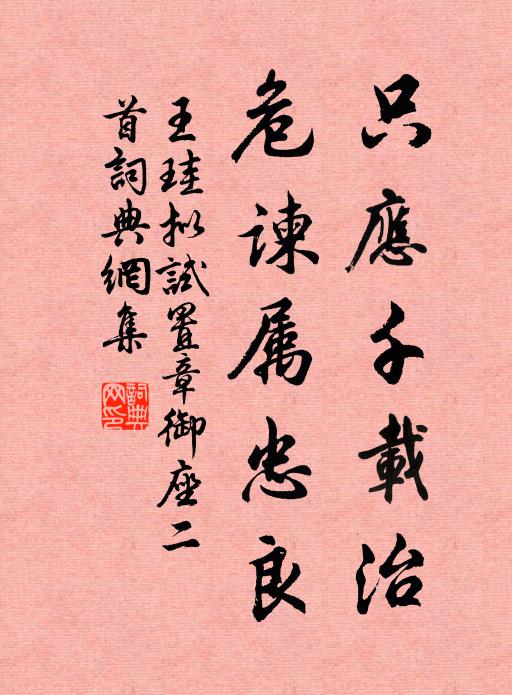 只應千載治
危諫属忠良
王珪拟試置章御座二
首詞典網集
詞典網印